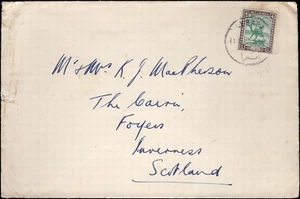 Mr & Mrs K. J. MacPherson
The Cairn,
Foyers
Inverness
Scotland